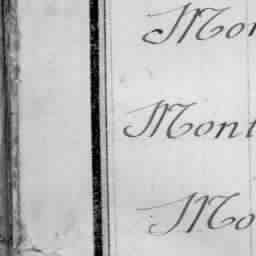 Mon
Mont
Mo